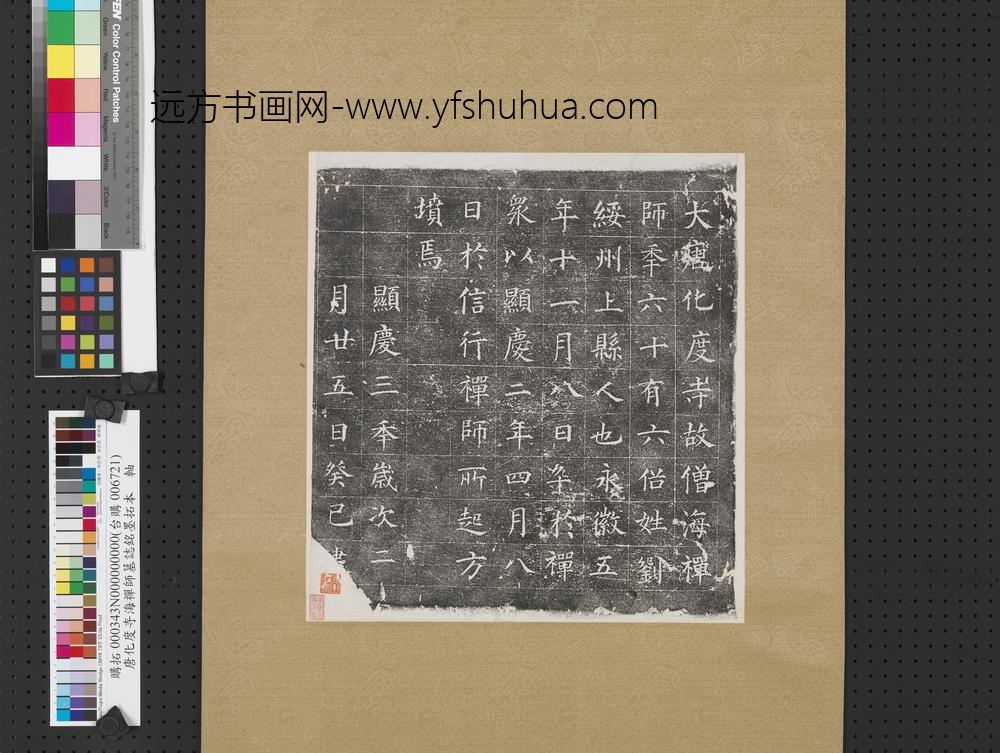 远方书画网-www.yfshuhua.com
大唐化度寺故僧海禪
師秊六十有六俗姓劉
綏州上縣人也永徽五
年十一月八日卒於禪
衆以顯慶二年四月八
日於信行禪師所起方
墳焉
顯慶三秊歲次二
月廿五日癸巳建
Color Control Patches
Green
Yellow
Red
Magenta
White
3/Color
Black
購拓 000343N000000000(台購 006721)
唐化度寺海禪師墓誌銘墨拓本 軸